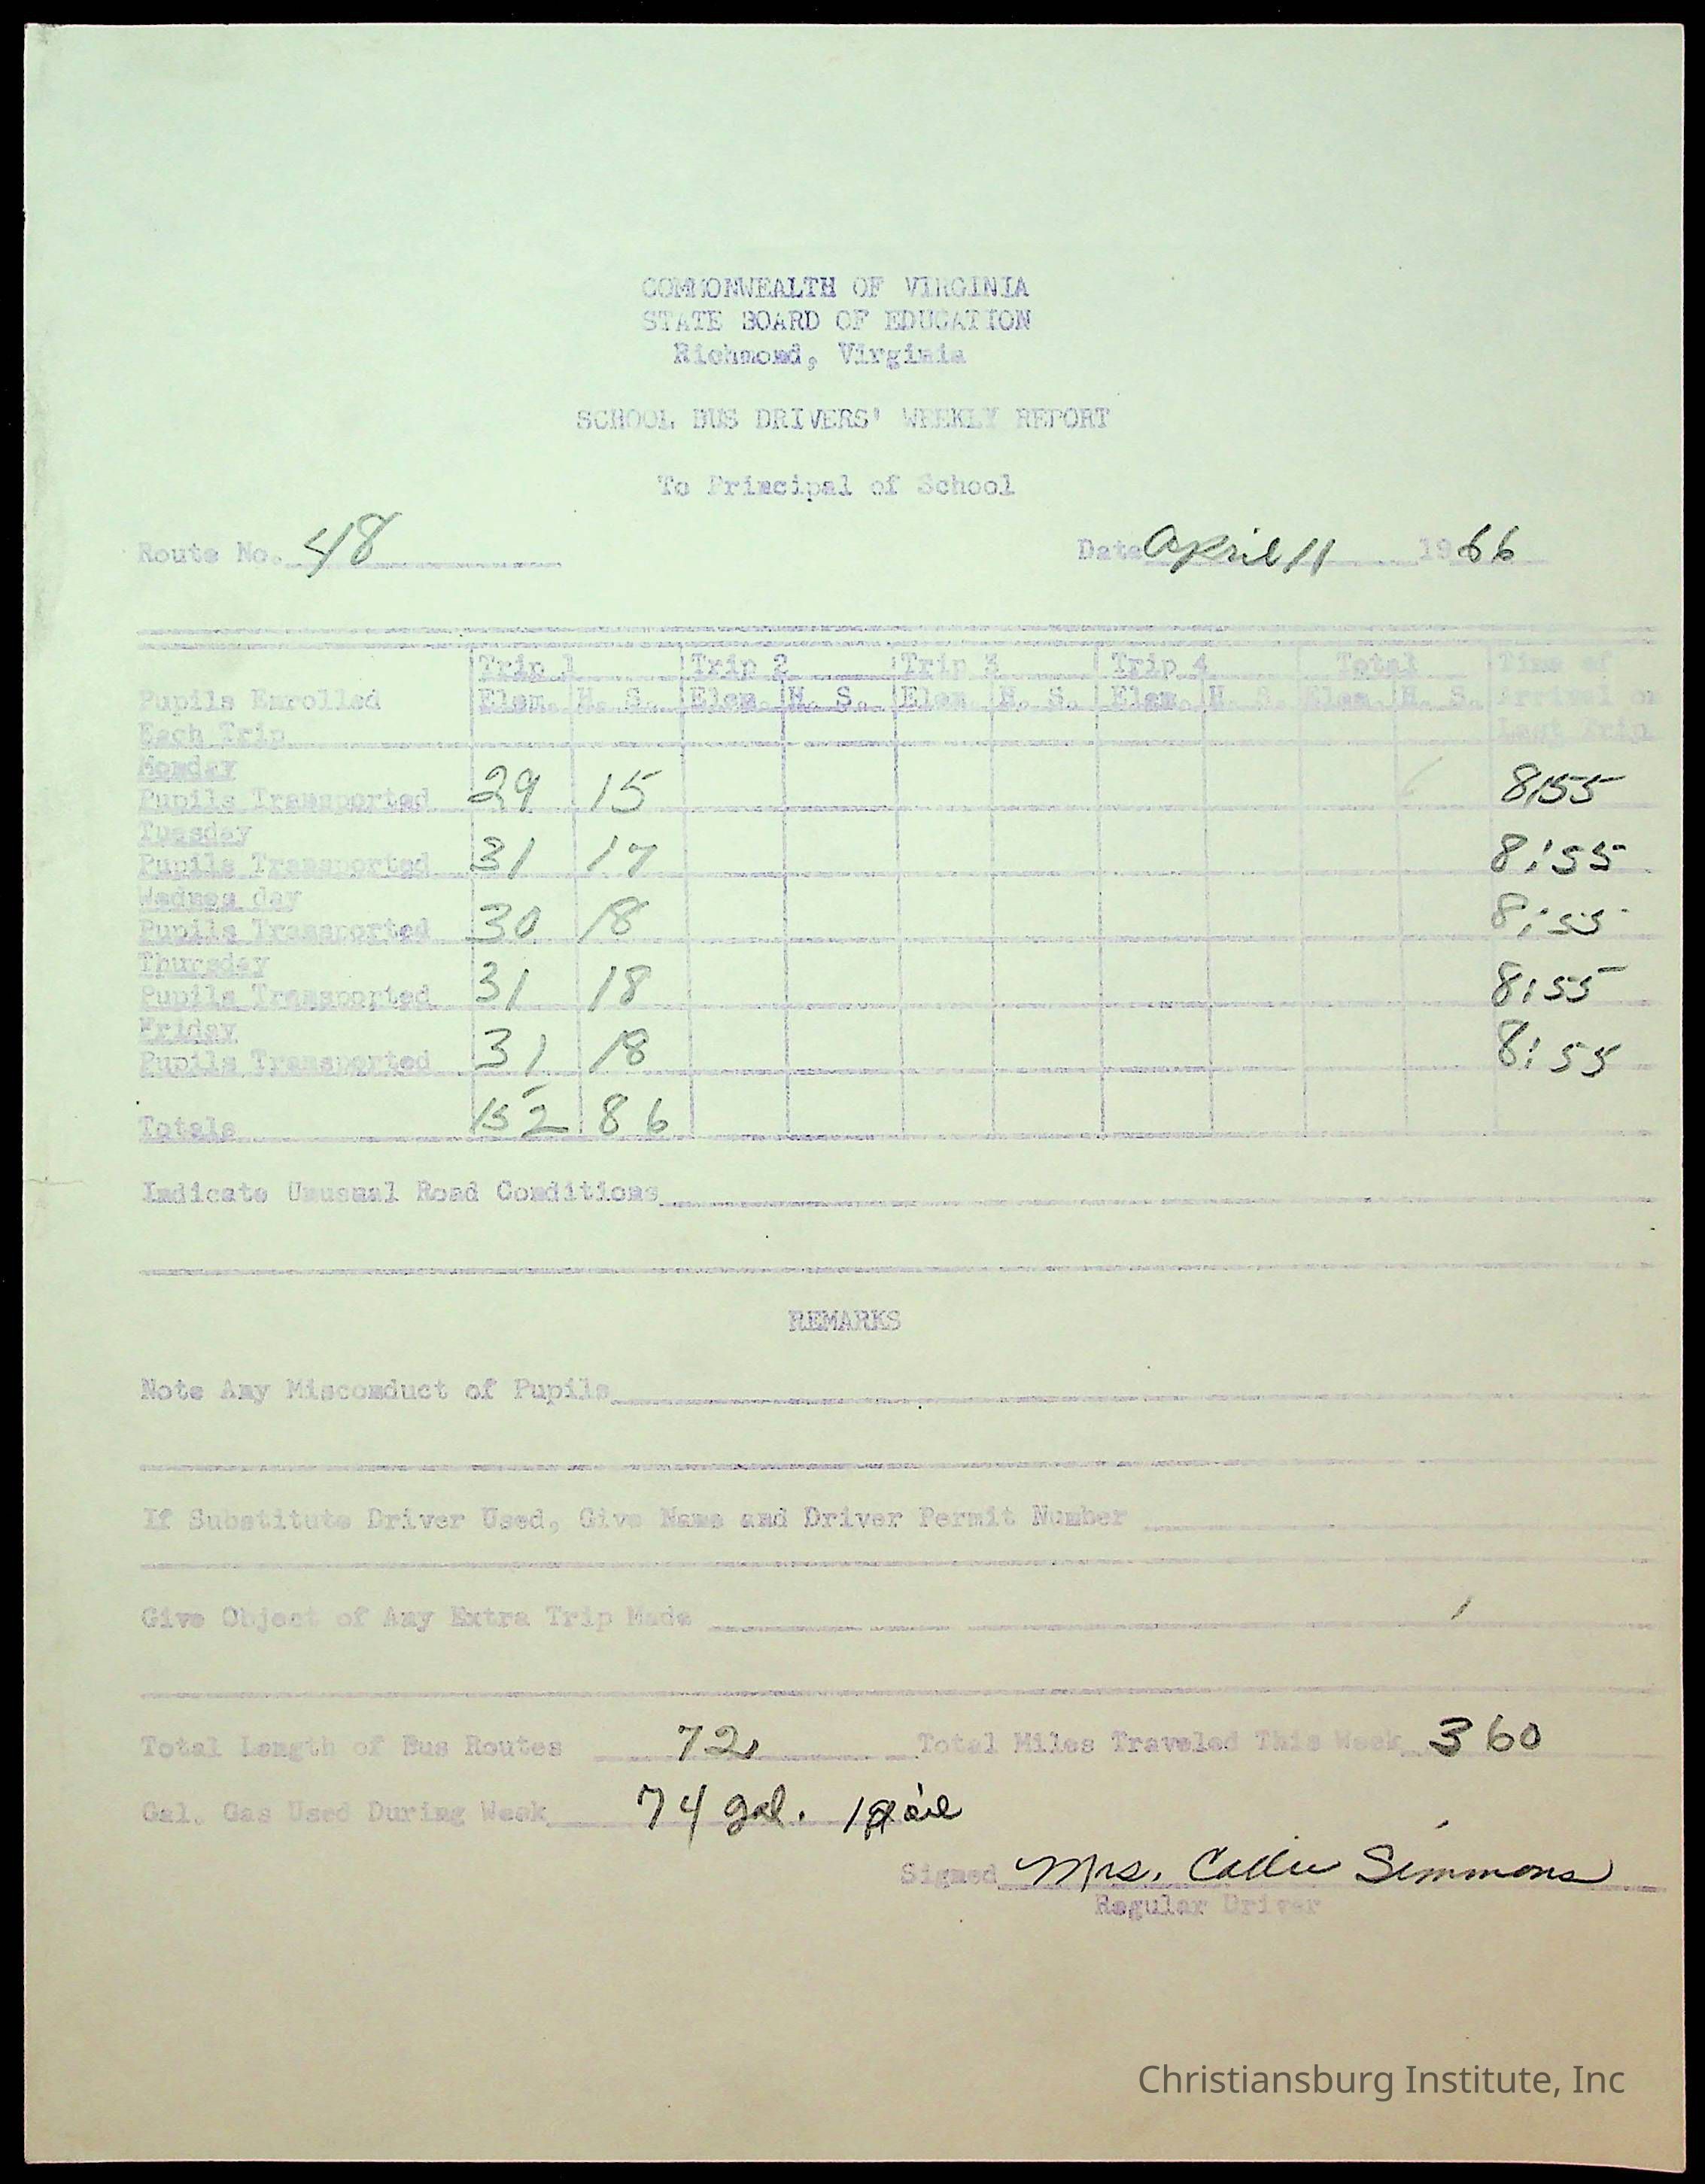 COMMONWEALTH OF VIRGINIA
STATE BOARD OF EDUCATION
Richmond, Virginia
SCHOOL BUS DRIVERS' WEEKLY REPORT
To Principal of School
Route No. 48 Date April 11 1966
Trip 1 Trip 2 Trip 3 Trip 4 Total Time of
Pupils Enrolled Elem. H. S. Elem. H. S. Elem H. S. Elem. H. S. Elem. H. S. Arrival on
Each Trip Last Trip
Monday
Pupils Transported 29 15 8:55
Tuesday
Pupils Transported 31 17 8:55
Wednes day
Pupils Transported 30 18 8:55
Thursday
Pupils Transported 31 18 8:55
Friday
Pupils Transported 31 18 8:55
Totals 152 86
Indicate Unusual Road Conditions
REMARKS
Note Any Misconduct of Pupils
If Substitute Driver Used, Give Name and Driver Permit Number
Give Object of Any Extra Trip Made
Total Length of Bus Routes 72 Total Miles Traveled This Week 360
Gal. Gas Used During Week 74 gal. 1 qt oil
Signed Mrs. Callie Simmons
Regular Driver
Christiansburg Institute, Inc